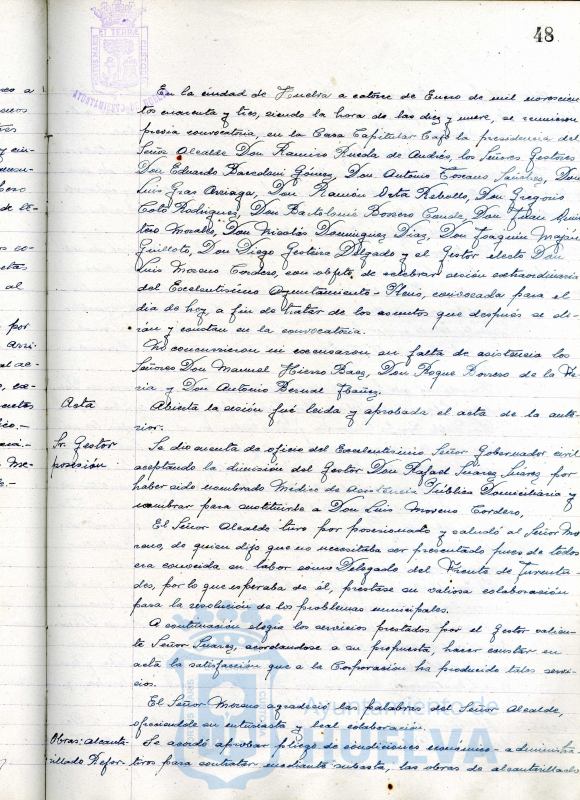 48
En la ciudad de Huelva a catorce de Enero de mil novecien-
tos cuarenta y tres, siendo la hora de las diez y nueve, se reunieron
previa convocatoria, en la Casa Capitular bajo la presidencia del
Señor Alcalde Don Ramiro Rueda de Andrés, los Señores Gestores
Don Eduardo Barcelani Gómez, Don Antonio Toscano Sánchez, Don
Luis Gras Arriaga, Don Ramón Orta Rebollo, Don Gregorio
Coto Rodríguez, Don Bartolomé Borrero Conde, Don Juan Quin
tero Morales, Don Nicolás Dominguez Diaz, Don Joaquin
Guilloto, Don Diego Delgado y el Gestor electo Don
Luis Moreno Cordero, con objeto de celebrar sesión extraordinaria
del Excelentísimo Ayuntamiento-Pleno, convocada para el
día de hoy a fin de tratar de los asuntos que después se di-
rán y constan en la convocatoria.
No concurrieron ni excusaron su falta de asistencia los
Señores Don Manuel Hierro Baez, Don Roque Borrero de la Fe
ria y Don Antonio Bernal Ibañez.
Acta
Abierta la sesión fué leida y aprobada el acta de la ante-
rior.
Sr. Gestor
posesión
Se dio cuenta de oficio del Excelentísimo Señor Gobernador civil
aceptando la dimisión del Gestor Don Rafael Suárez Suárez por
haber sido nombrado Médico de Asistencia Pública Domiciliaria y
nombrar para sustituirle a Don Luis Moreno Cordero,
El Señor Alcalde tuvo por posesionado y saludó al Señor Mo
reno, de quien dijo que no necesitaba ser presentado pues de todos
era conocida su labor como Delegado del Frente de Juventu-
des, por lo que esperaba de él, prestase su valiosa colaboración
para la resolución de los problemas municipales.
A continuación elogió los servicios prestados por el Gestor salien-
te Señor Suarez, acordandose a su propuesta, hacer constar en
acta la satisfacción que a la Corporación ha producido tales servi-
cios.
El Señor Moreno agradeció las palabras del Señor Alcalde,
ofreciendole su entusiasta y leal colaboración.
Obras: alcanta-
rillado Refor-
Se acordó aprobar pliego de condiciones economico-administra
tivas para contratar mediante subasta, las obras de alcantarillado
Ayuntamiento de
HUELVA